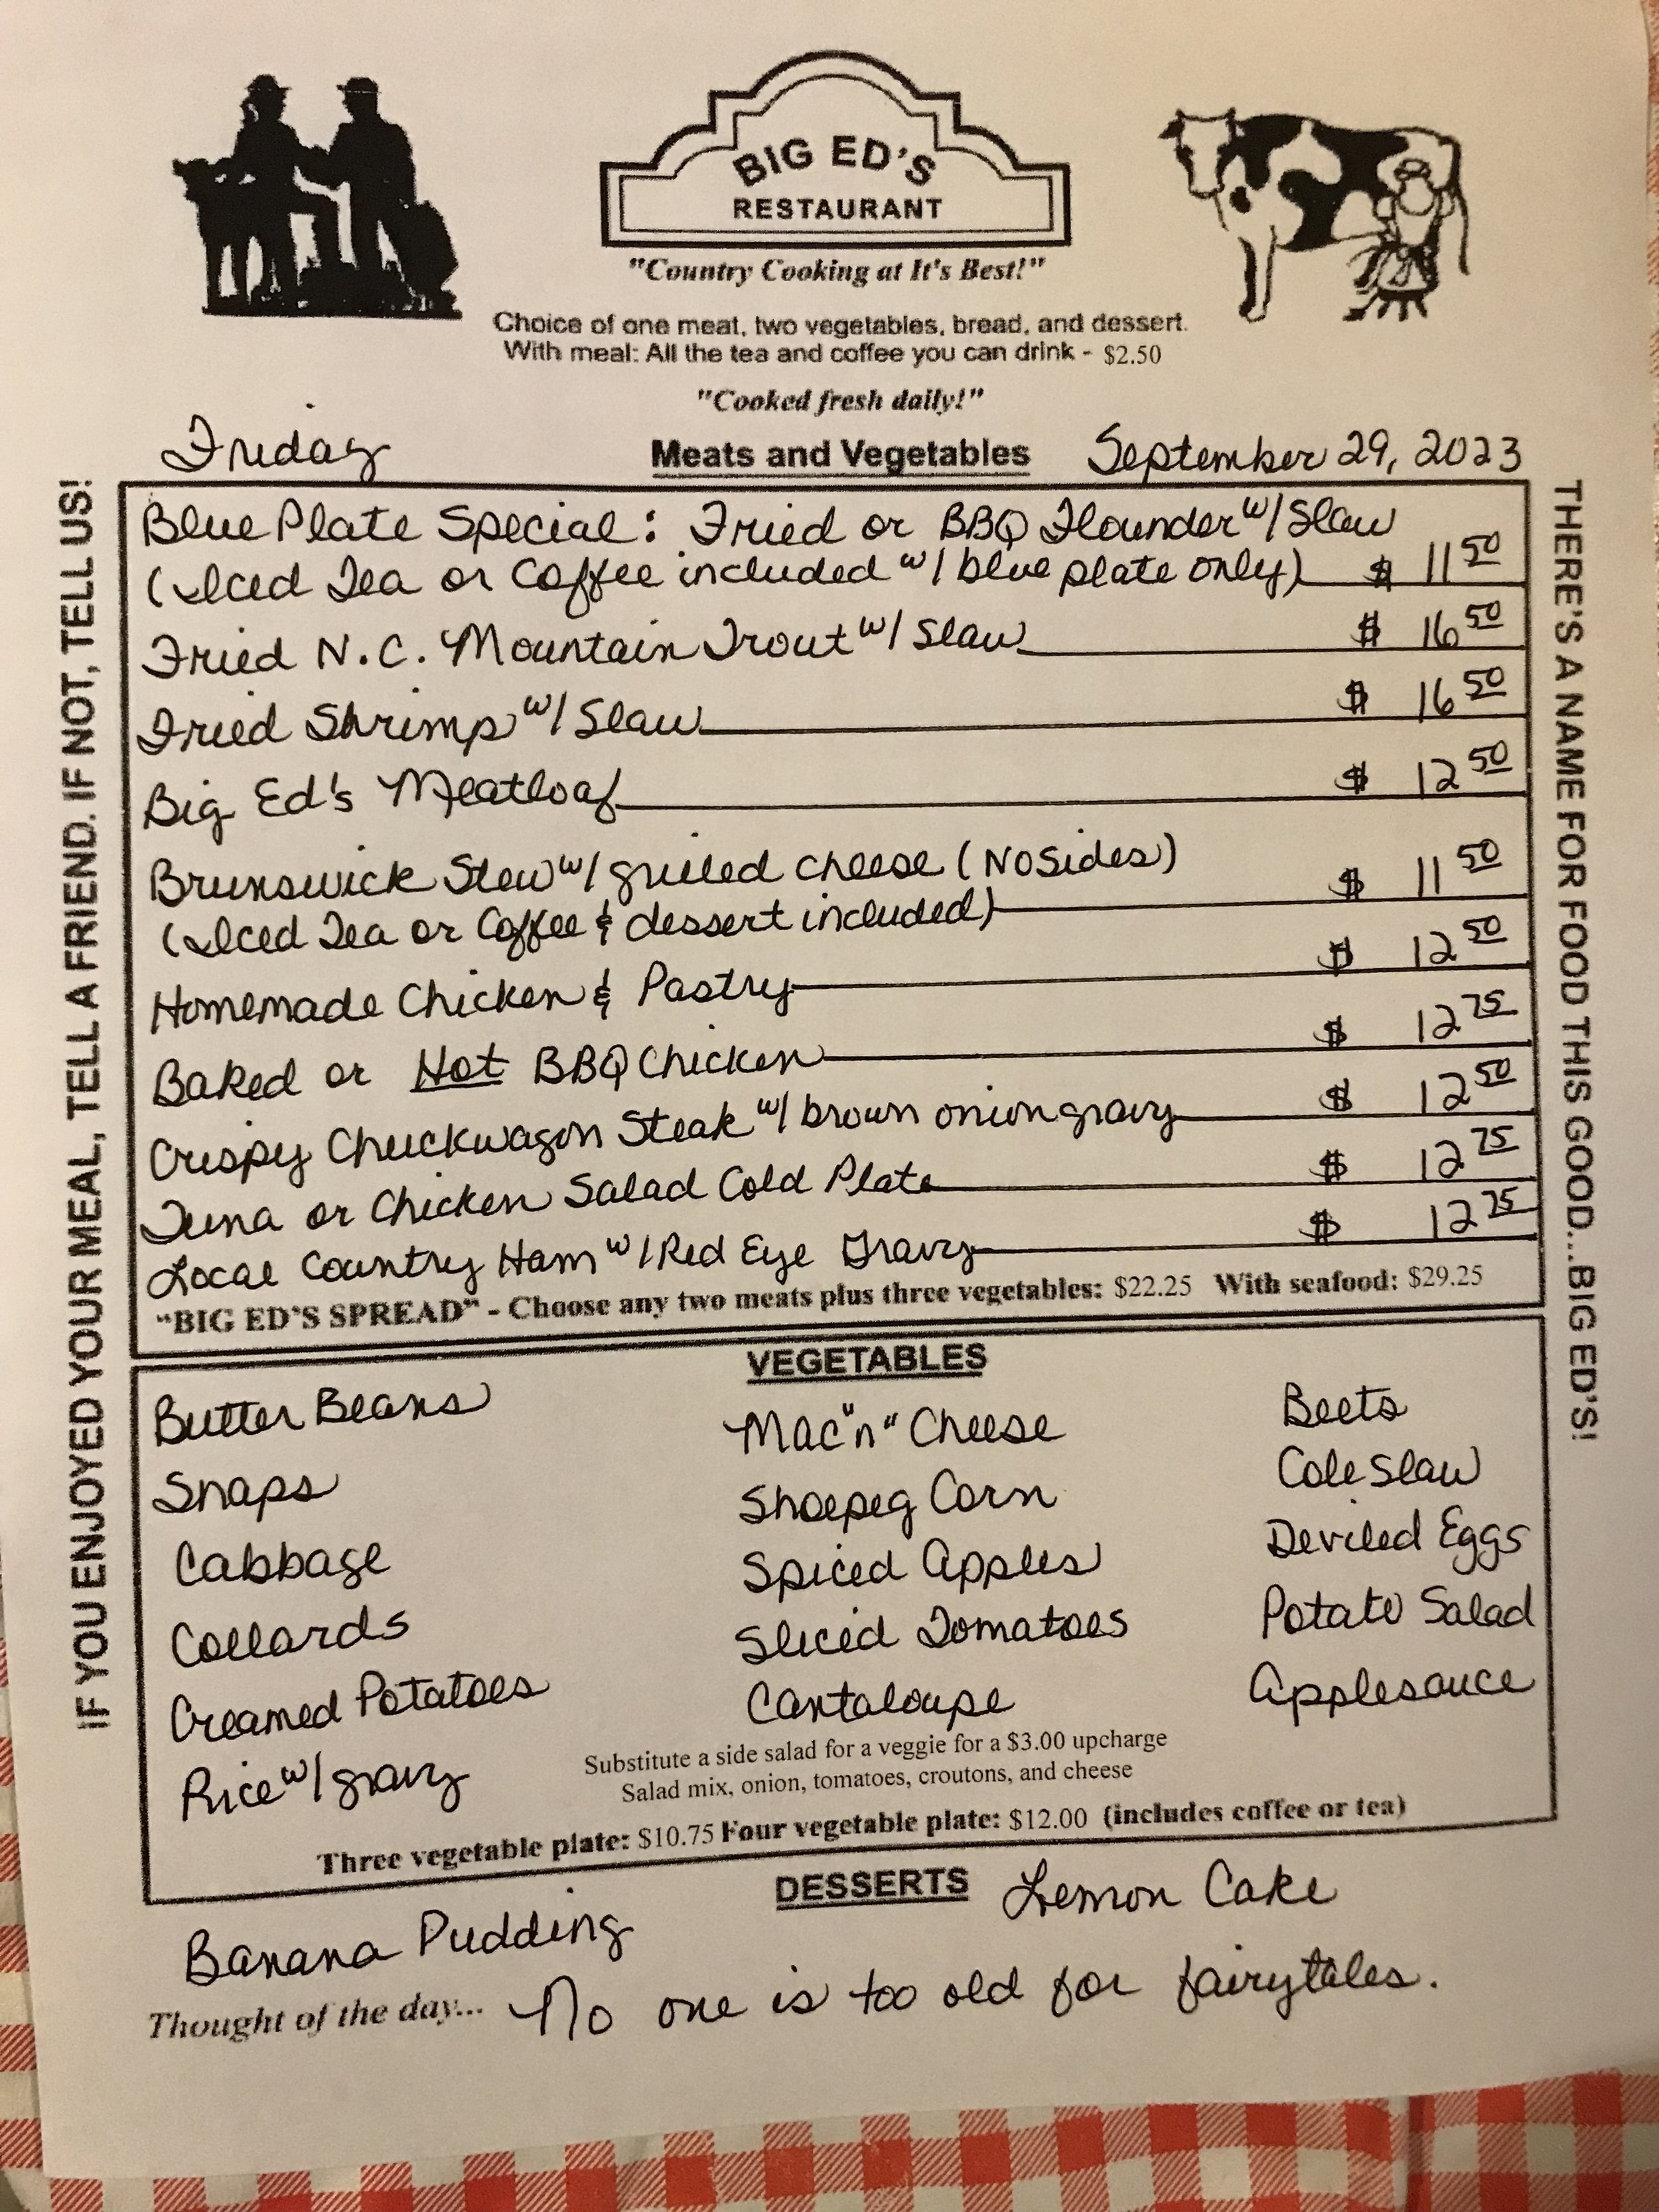 BIG ED'S
RESTAURANT
"Country Cooking at It's Best!"
Choice of one meat, two vegetables, bread, and dessert.
With meal: All the tea and coffee you can drink - $2.50
"Cooked fresh daily!"
Friday Meats and Vegetables September 29, 2023
IF YOU ENJOYED YOUR MEAL, TELL A FRIEND. IF NOT, TELL US!
Blue Plate Special: Fried or BBQ Flounder w/ Slaw
(Iced Tea or Coffee included w/ blue plate only) $ 11 50
Fried N.C. Mountain Trout w/ Slaw $ 16 50
Fried Shrimp w/ Slaw $ 16 50
Big Ed's Meatloaf $ 12 50
Brunswick Stew w/ grilled cheese (No Sides)
(Iced Tea or Coffee & dessert included) $ 11 50
Homemade Chicken & Pastry $ 12 50
Baked or Hot BBQ Chicken $ 12 75
Crispy Chuckwagon Steak w/ brown onion gravy $ 12 50
Tuna or Chicken Salad Cold Plate $ 12 75
Local Country Ham w/ Red Eye Gravy $ 12 75
"BIG ED'S SPREAD" - Choose any two meats plus three vegetables: $22.25 With seafood: $29.25
THERE'S A NAME FOR FOOD THIS GOOD...BIG ED'S!
VEGETABLES
Butter Beans Mac "n" Cheese Beets
Snaps Shoepeg Corn Cole Slaw
Cabbage Spiced Apples Deviled Eggs
Collards Sliced Tomatoes Potato Salad
Creamed Potatoes Cantaloupe Applesauce
Rice w/ gravy
Substitute a side salad for a veggie for a $3.00 upcharge
Salad mix, onion, tomatoes, croutons, and cheese
Three vegetable plate: $10.75 Four vegetable plate: $12.00 (includes coffee or tea)
DESSERTS
Banana Pudding Lemon Cake
Thought of the day... No one is too old for fairytales.